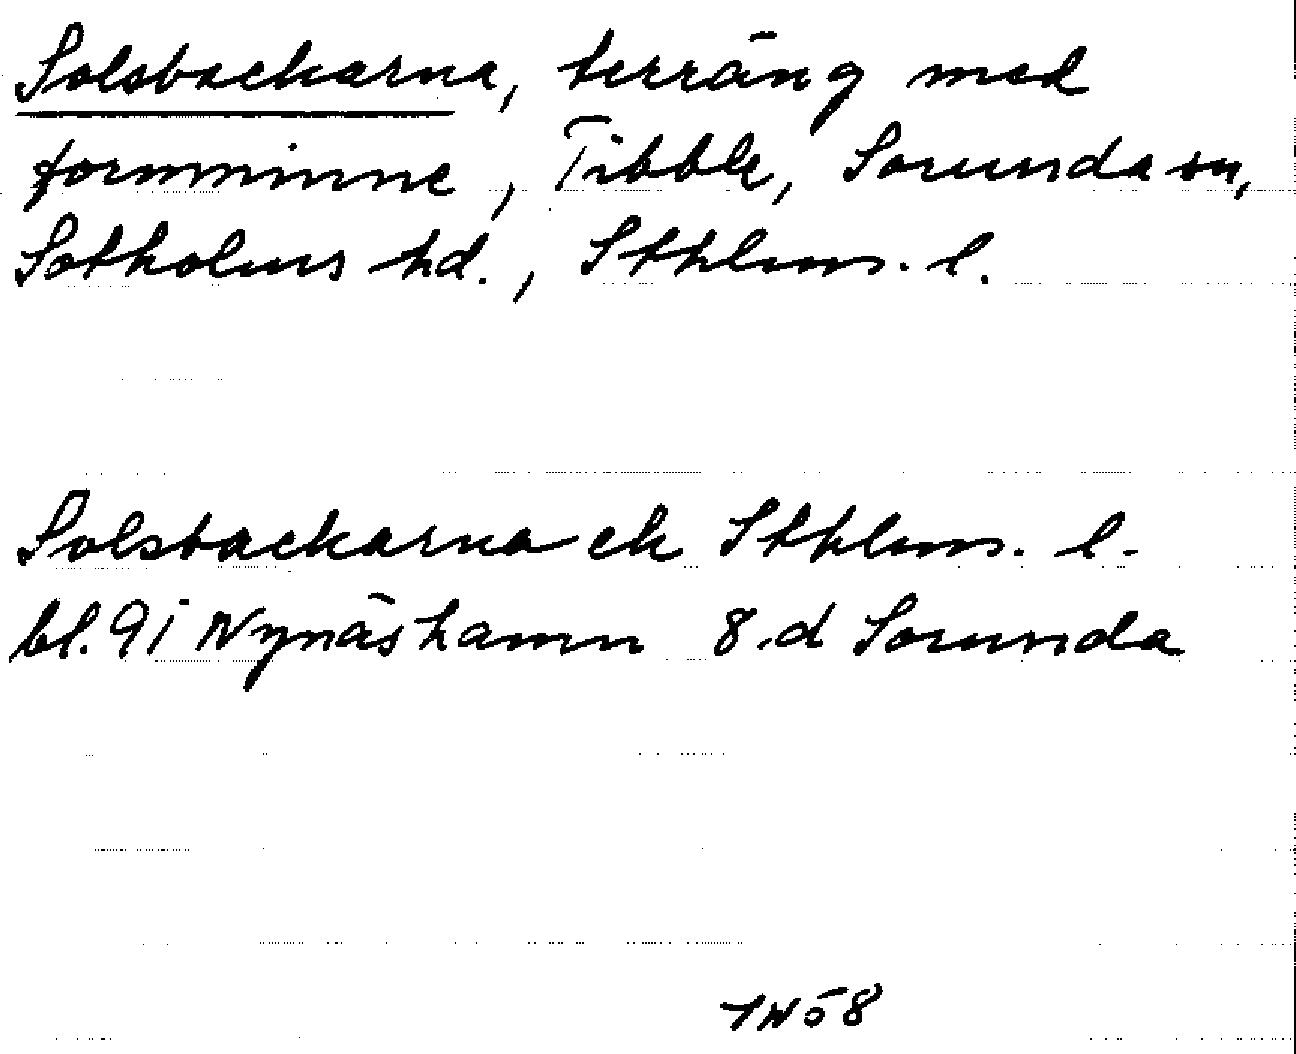 Solsbackarna, terräng med
fornminne, Tibble, Sorunda sn,
Sotholms hd., Sthlms. l.
Solsbackarna ek Sthlms. l.
bl. 9i Nynäshamn 8.d Sorunda